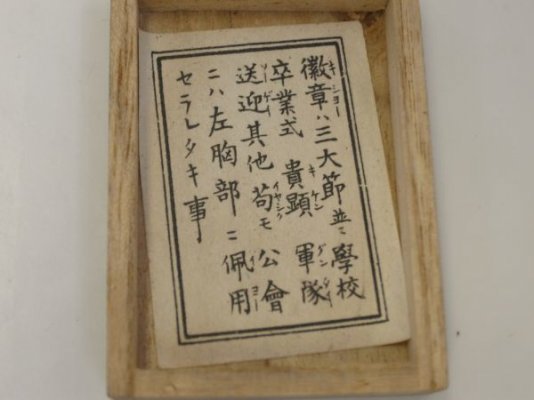 徽章ハ三大節並ニ學校
卒業式 貴顯 軍隊
送迎其他苟モ公會
ニハ左胸部ニ佩用
セラレタキ事